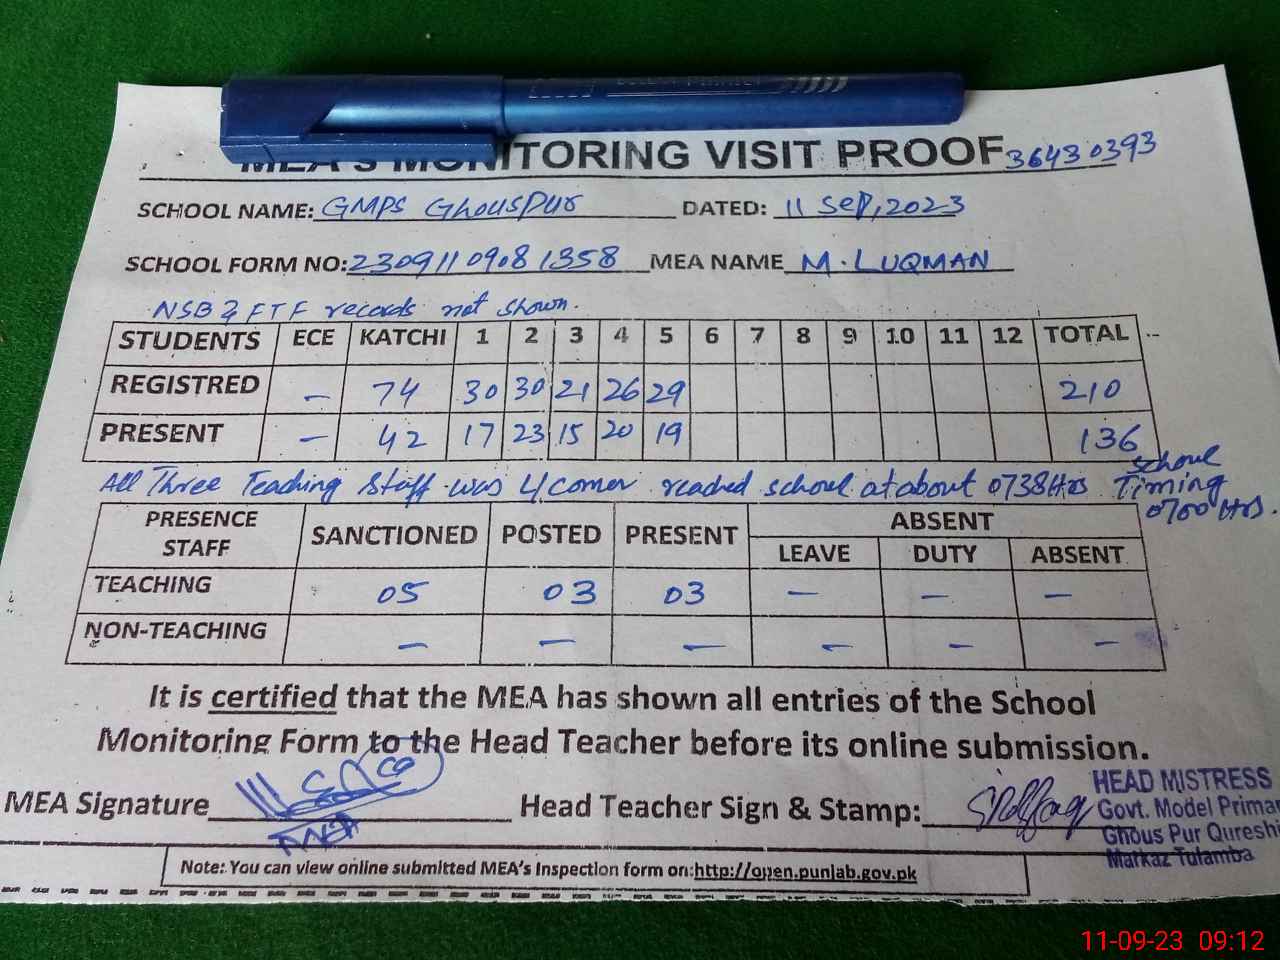 MEA'S MONITORING VISIT PROOF 36430393
SCHOOL NAME: GMPS Ghouspur DATED: 11 Sep, 2023
SCHOOL FORM NO: 2309110908 1358 MEA NAME M. LUQMAN
NSB & FTF records not shown.
STUDENTS ECE KATCHI 1 2 3 4 5 6 7 8 9 10 11 12 TOTAL
REGISTRED - 74 30 30 21 26 29 210
PRESENT - 42 17 23 15 20 19 136
All Three Teaching Staff was L/comer reached school at about 0738 Hrs School Timing 0700 Hrs.
PRESENCE STAFF SANCTIONED POSTED PRESENT ABSENT
LEAVE DUTY ABSENT
TEACHING 05 03 03 - - -
NON-TEACHING - - - - - -
It is certified that the MEA has shown all entries of the School
Monitoring Form to the Head Teacher before its online submission.
MEA Signature Head Teacher Sign & Stamp:
MEA
HEAD MISTRESS
Govt. Model Primar
Ghous Pur Qureshi
Markaz Tulamba
Note: You can view online submitted MEA's Inspection form on:http://open.punjab.gov.pk
11-09-23 09:12